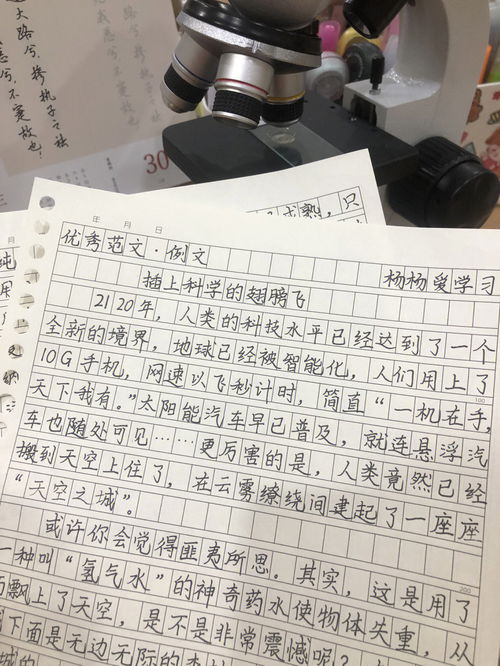 大路兮，掺执子之祛
兮，不寁故也！
30
只
年 月 日
优秀范文·例文
杨杨爱学习
插上科学的翅膀飞
2120年，人类的科技水平已经达到了一个
全新的境界，地球已经被智能化，人们用上了
10G手机，网速以飞秒计时，简直“一机在手，
100
天下我有。”太阳能汽车早已普及，就连悬浮汽
车也随处可见……更厉害的是，人类竟然已经
搬到天空上住了，在云雾缭绕间建起了一座座
“天空之城”。
或许你会觉得匪夷所思。其实，这是用了
200
一种叫“氢气水”的神奇药水使物体失重，从
而飘上了天空，是不是非常震憾呢？
下面是无边无际的森林